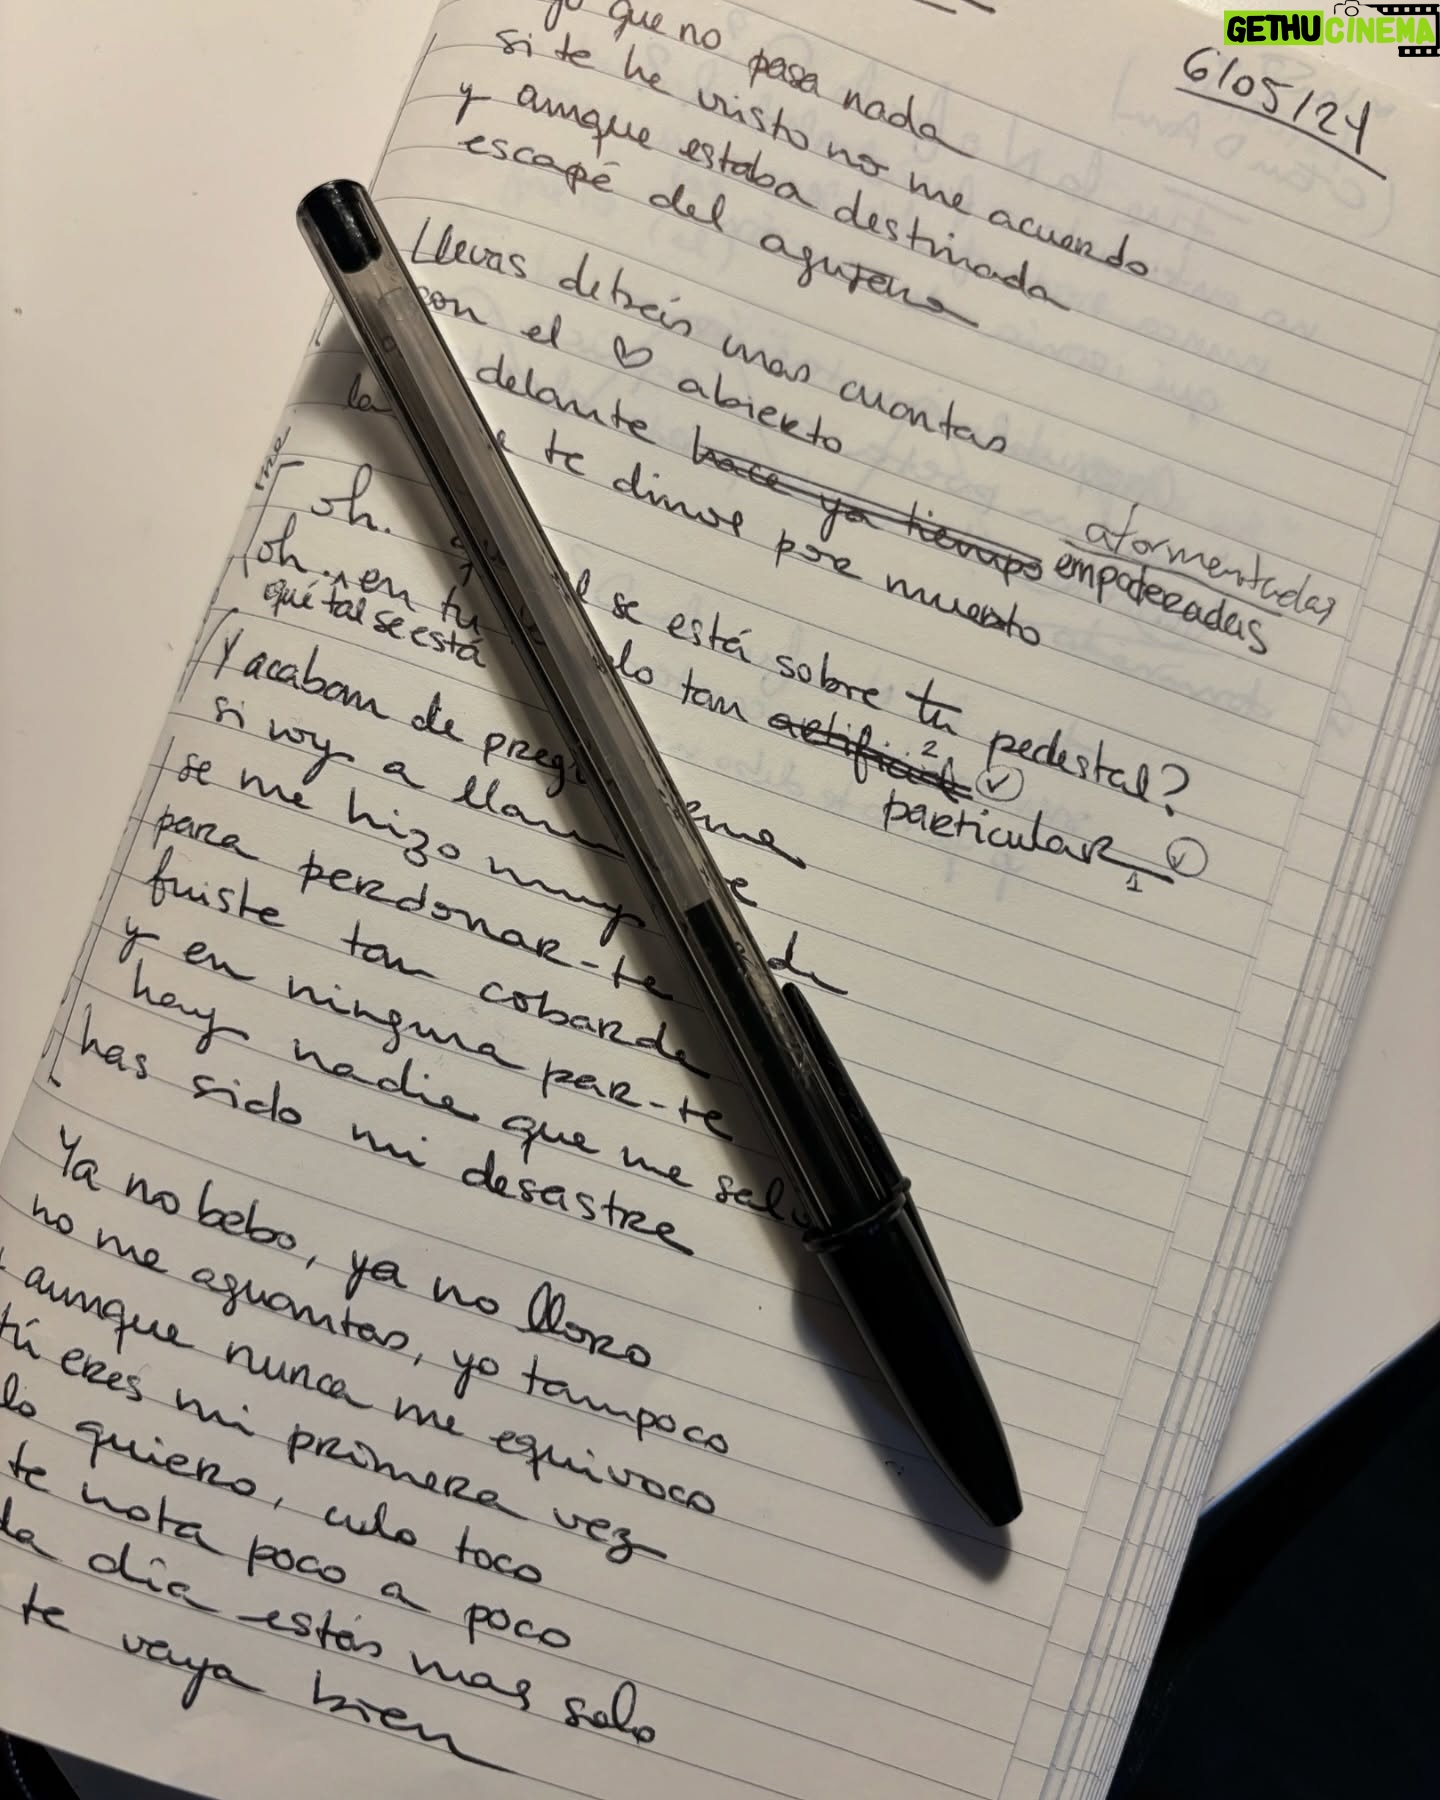 GETHUCINEMA
6/05/24
que no pasa nada
si te he visto no me acuerdo
y aunque estaba destinada
escapé del agujero
Llevas detrás mas cuantas
con el ♡ abierto
delante hace ya tiempo empoderadas
atormentadas
te dimos por muerto
oh. se está sobre tu pedestal?
oh.. en tu tan artificial 2 ✓
qué tal se está
particular 1 ✓
Y acaban de
si voy a
se me hizo muy
para perdonar-te
fuiste tan cobarde
y en ninguna par-te
hay nadie que me
has sido mi desastre
Ya no bebo, ya no lloro
no me aguantas, yo tampoco
aunque nunca me equivoco
tú eres mi primera vez
lo quiero, culo toco
te nota poco a poco
día estás mas solo
te vaya bien